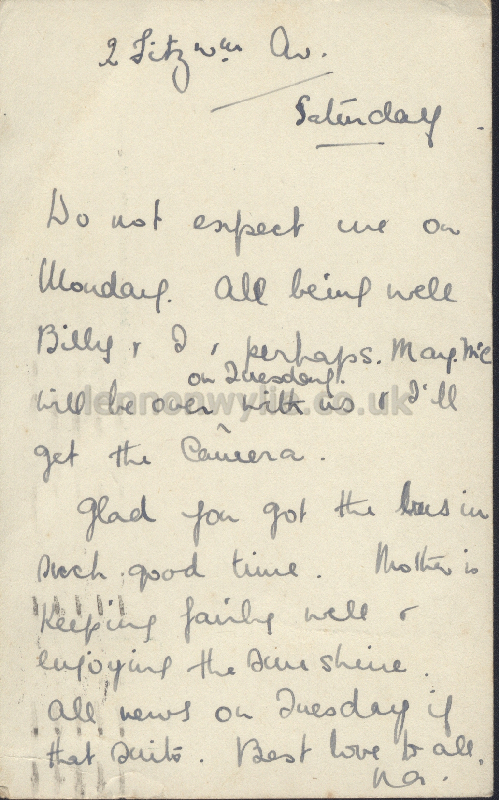 2 Fitzwm Av.
Saturday.
Do not expect me on
Monday. All being well
Billy & I, perhaps. May. McC
on Tuesday.
will be over with us & I'll
get the Camera.
Glad you got the bus in
such good time. Mother is
keeping fairly well &
enjoying the sunshine.
All news on Tuesday if
that suits. Best love to all.
lennonwylie.co.uk